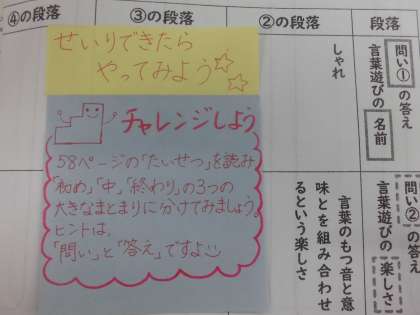 ④の段落
③の段落
②の段落
段落
問い①の答え
言葉遊びの名前
しゃれ
問い②の答え
言葉遊びの楽しさ
言葉のもつ音と意
味とを組み合わせ
るという楽しさ
せいりできたら
やってみよう☆☆
チャレンジしよう
58ページの「たいせつ」を読み
「初め」「中」「終わり」の3つの
大きなまとまりに分けてみましょう。
ヒントは、
「問い」と「答え」ですよ